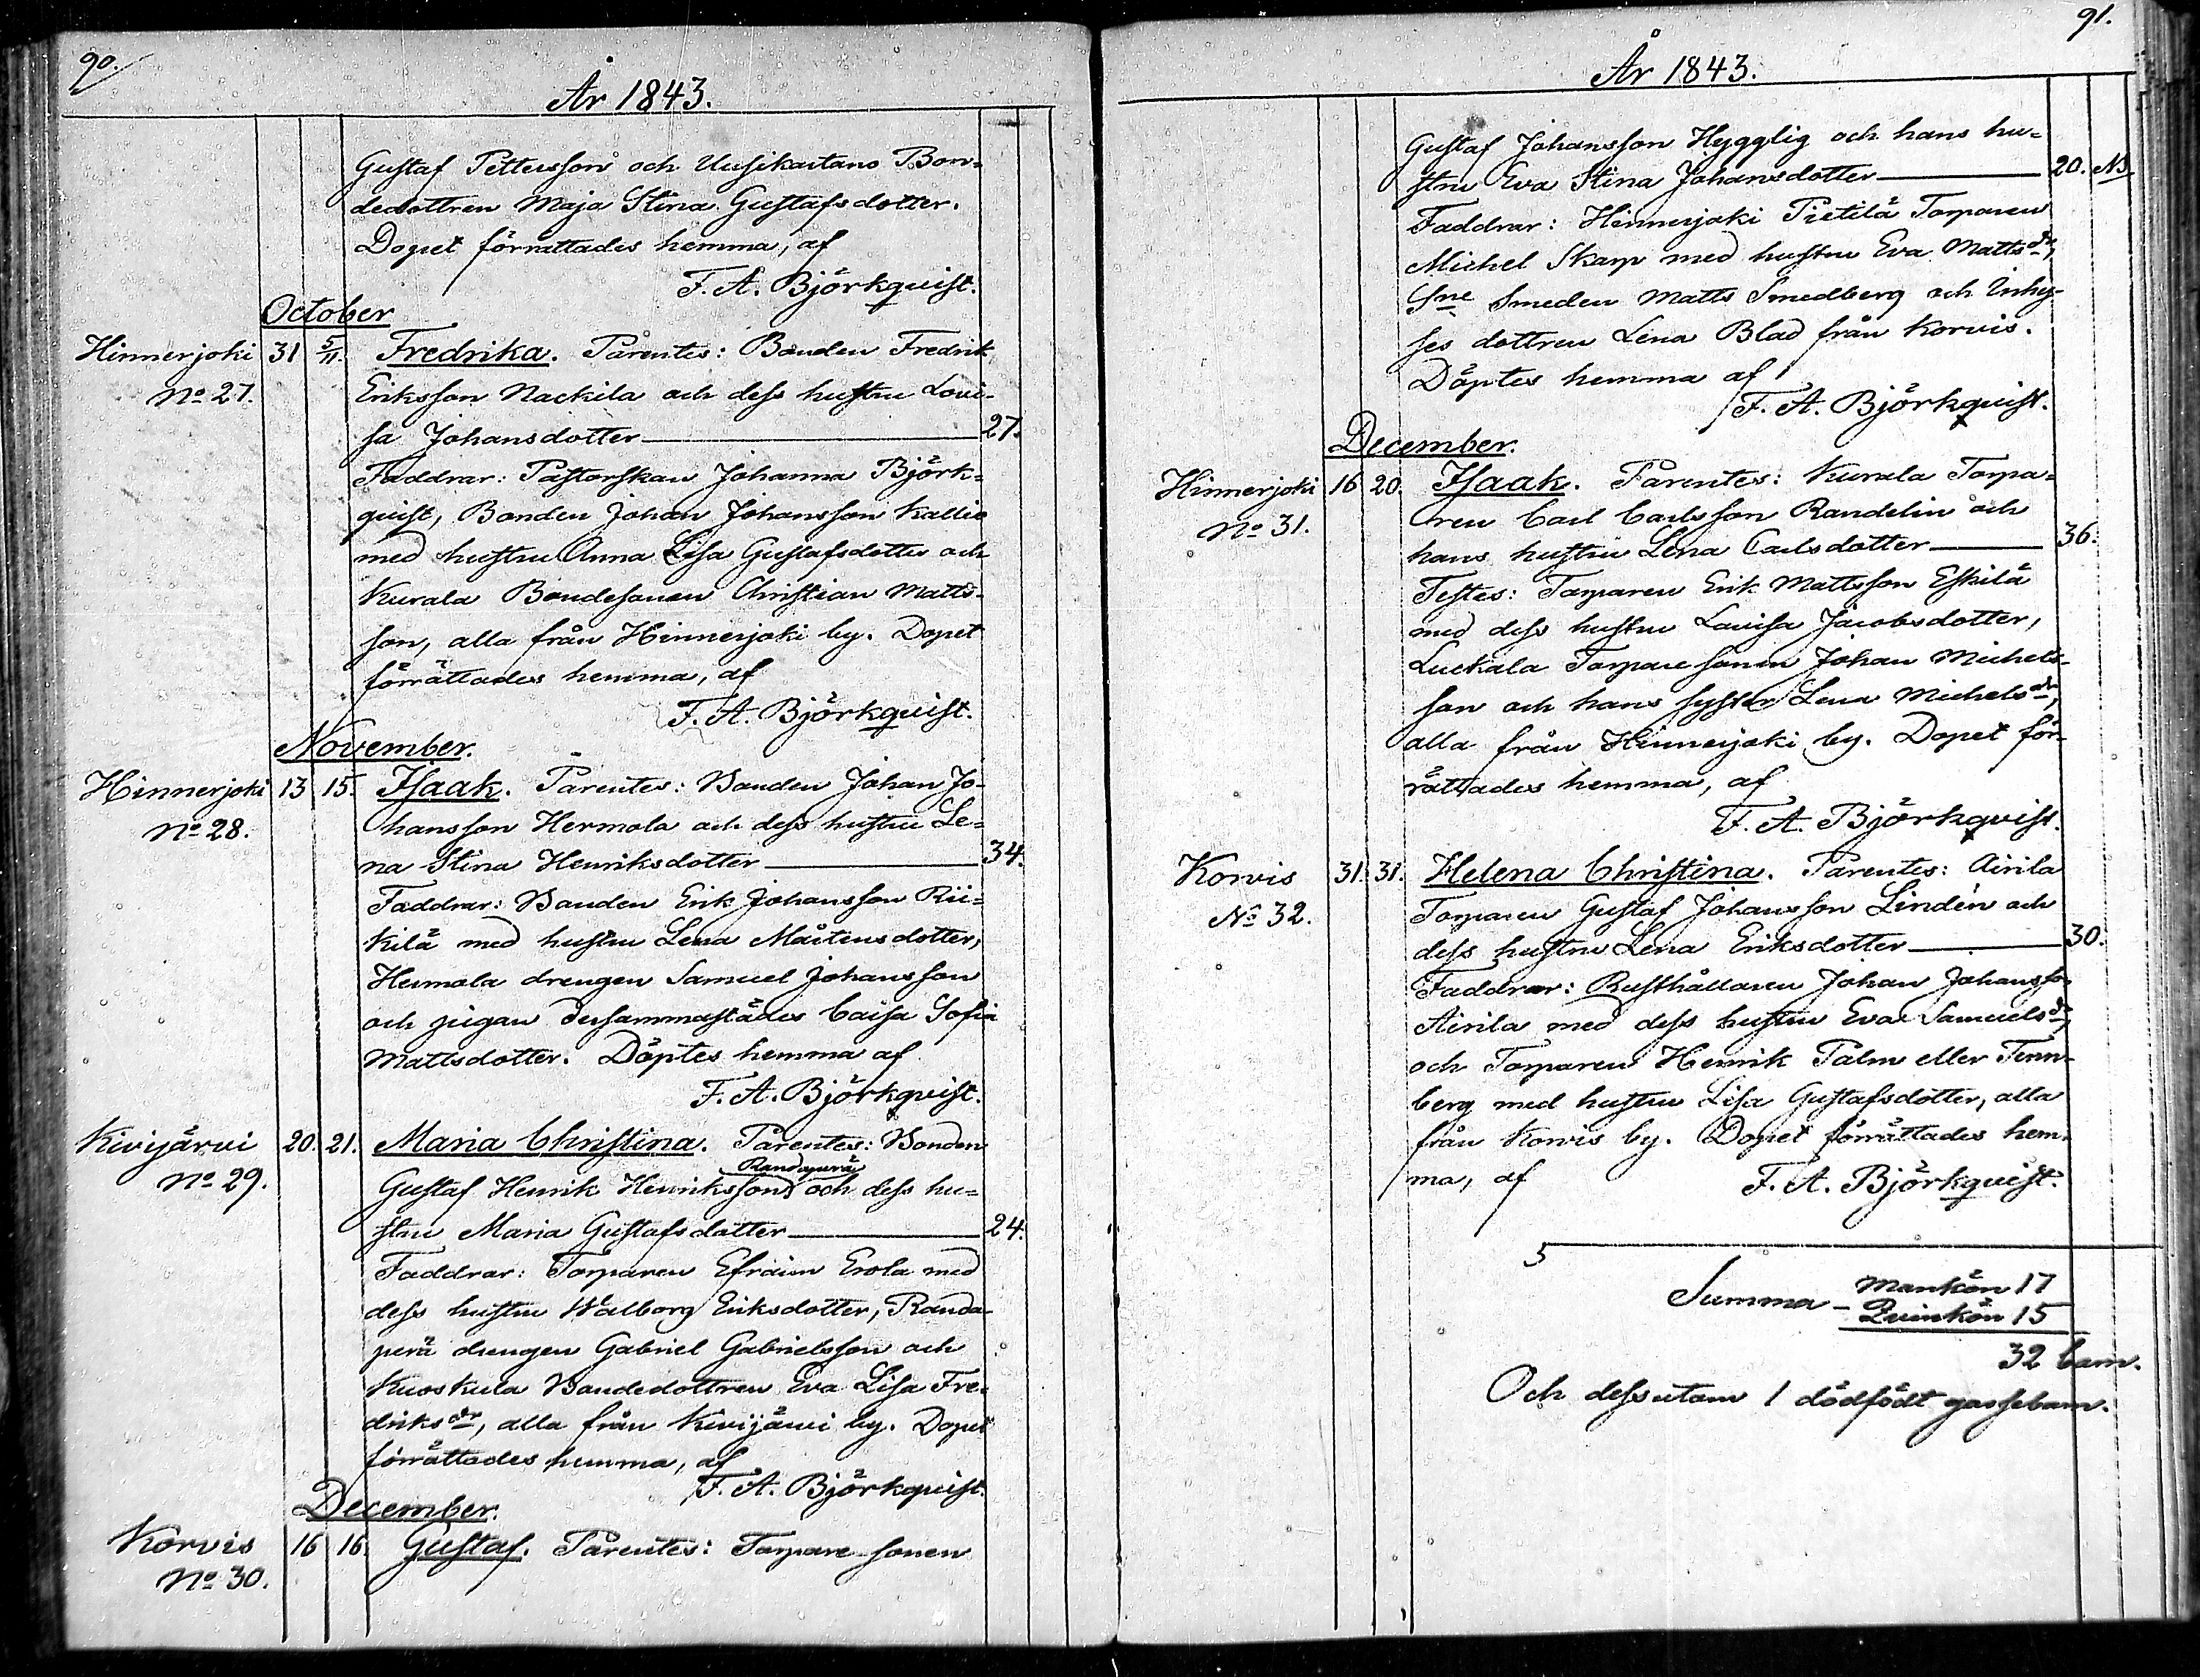 90.
År 1843.
Gustaf Pettersson och Uusikartano Bon-
dedottren Maja Stina Gustafsdotter.
Dopet förrättades hemma, af
F. A. Björkquist.
October
Hinnerjoki 31 5/11. Fredrika. Parentes: Bonden Fredrik
No 27. Eriksson Nackila och dess hustru Lovi-
sa Johansdotter 27.
Faddrar: Pastorskan Johanna Björk-
quist, Bonden Johan Johansson Kallio
med hustru Anna Lisa Gustafsdotter och
Kurala Bondesonen Christian Matts-
son, alla från Hinnerjoki by. Dopet
förrättades hemma, af
F. A. Björkquist.
November.
Hinnerjoki 13 15. Isaak. Parentes: Bonden Johan Jo-
No 28. hansson Hermola och dess hustru Le-
na Stina Henriksdotter 34.
Faddrar: Bonden Erik Johansson Rii-
kilä med hustru Lena Mårtensdotter,
Hermola drengen Samuel Johansson
och pigan dersammastädes Caisa Sofia
Mattsdotter. Döptes hemma af
F. A. Björkquist.
Kivijärvi 20. 21. Maria Christina. Parentes: Bonden
Randaperä
No 29. Gustaf Henrik Henriksson och dess hu-
stru Maria Gustafsdotter 24.
Faddrar: Torparen Efraim Erola med
dess hustru Walborg Eriksdotter, Randa-
perä drengen Gabriel Gabrielsson och
Kuoskula Bondedottren Eva Lisa Fre-
driksdr, alla från Kivijärvi by. Dopet
förrättades hemma, af
F. A. Björkquist.
December.
Korvis 16 16. Gustaf. Parentes: Torpare sonen
No 30.
91.
År 1843.
Gustaf Johansson Hygglig och hans hu-
stru Eva Stina Johansdotter 20. NB.
Faddrar: Hinnerjoki Pietilä Torparen
Michel Skarp med hustru Eva Mattsdr,
Sne Smeden Matts Smedberg och Inhy-
ses dottren Lena Blad från Korvis.
Döptes hemma af
F. A. Björkquist.
December.
Hinnerjoki 16 20. Isaak. Parentes: Kurala Torpa-
No 31. ren Carl Carlsson Randelin och
hans hustru Lena Carlsdotter 36.
Testes: Torparen Erik Mattsson Eskilä
med dess hustru Lovisa Jacobsdotter,
Luckala Torpare sonen Johan Michels-
son och hans syster Lena Michelsdr,
alla från Hinnerjoki by. Dopet för-
rättades hemma, af
F. A. Björkquist.
Korvis 31. 31. Helena Christina. Parentes: Airila
No 32. Torparen Gustaf Johansson Lindén och
dess hustru Lena Eriksdotter 30.
Faddrar: Rusthållaren Johan Johansson
Airila med dess hustru Eva Samuelsdr,
och Torparen Henrik Palm eller Tenn-
berg med hustru Lisa Gustafsdotter, alla
från Korvis by. Dopet förrättades hem-
ma, af F. A. Björkquist.
5
Mankön 17
Summa - Qvinkön 15
32 barn.
Och dessutom 1 dödfödt gossebarn.